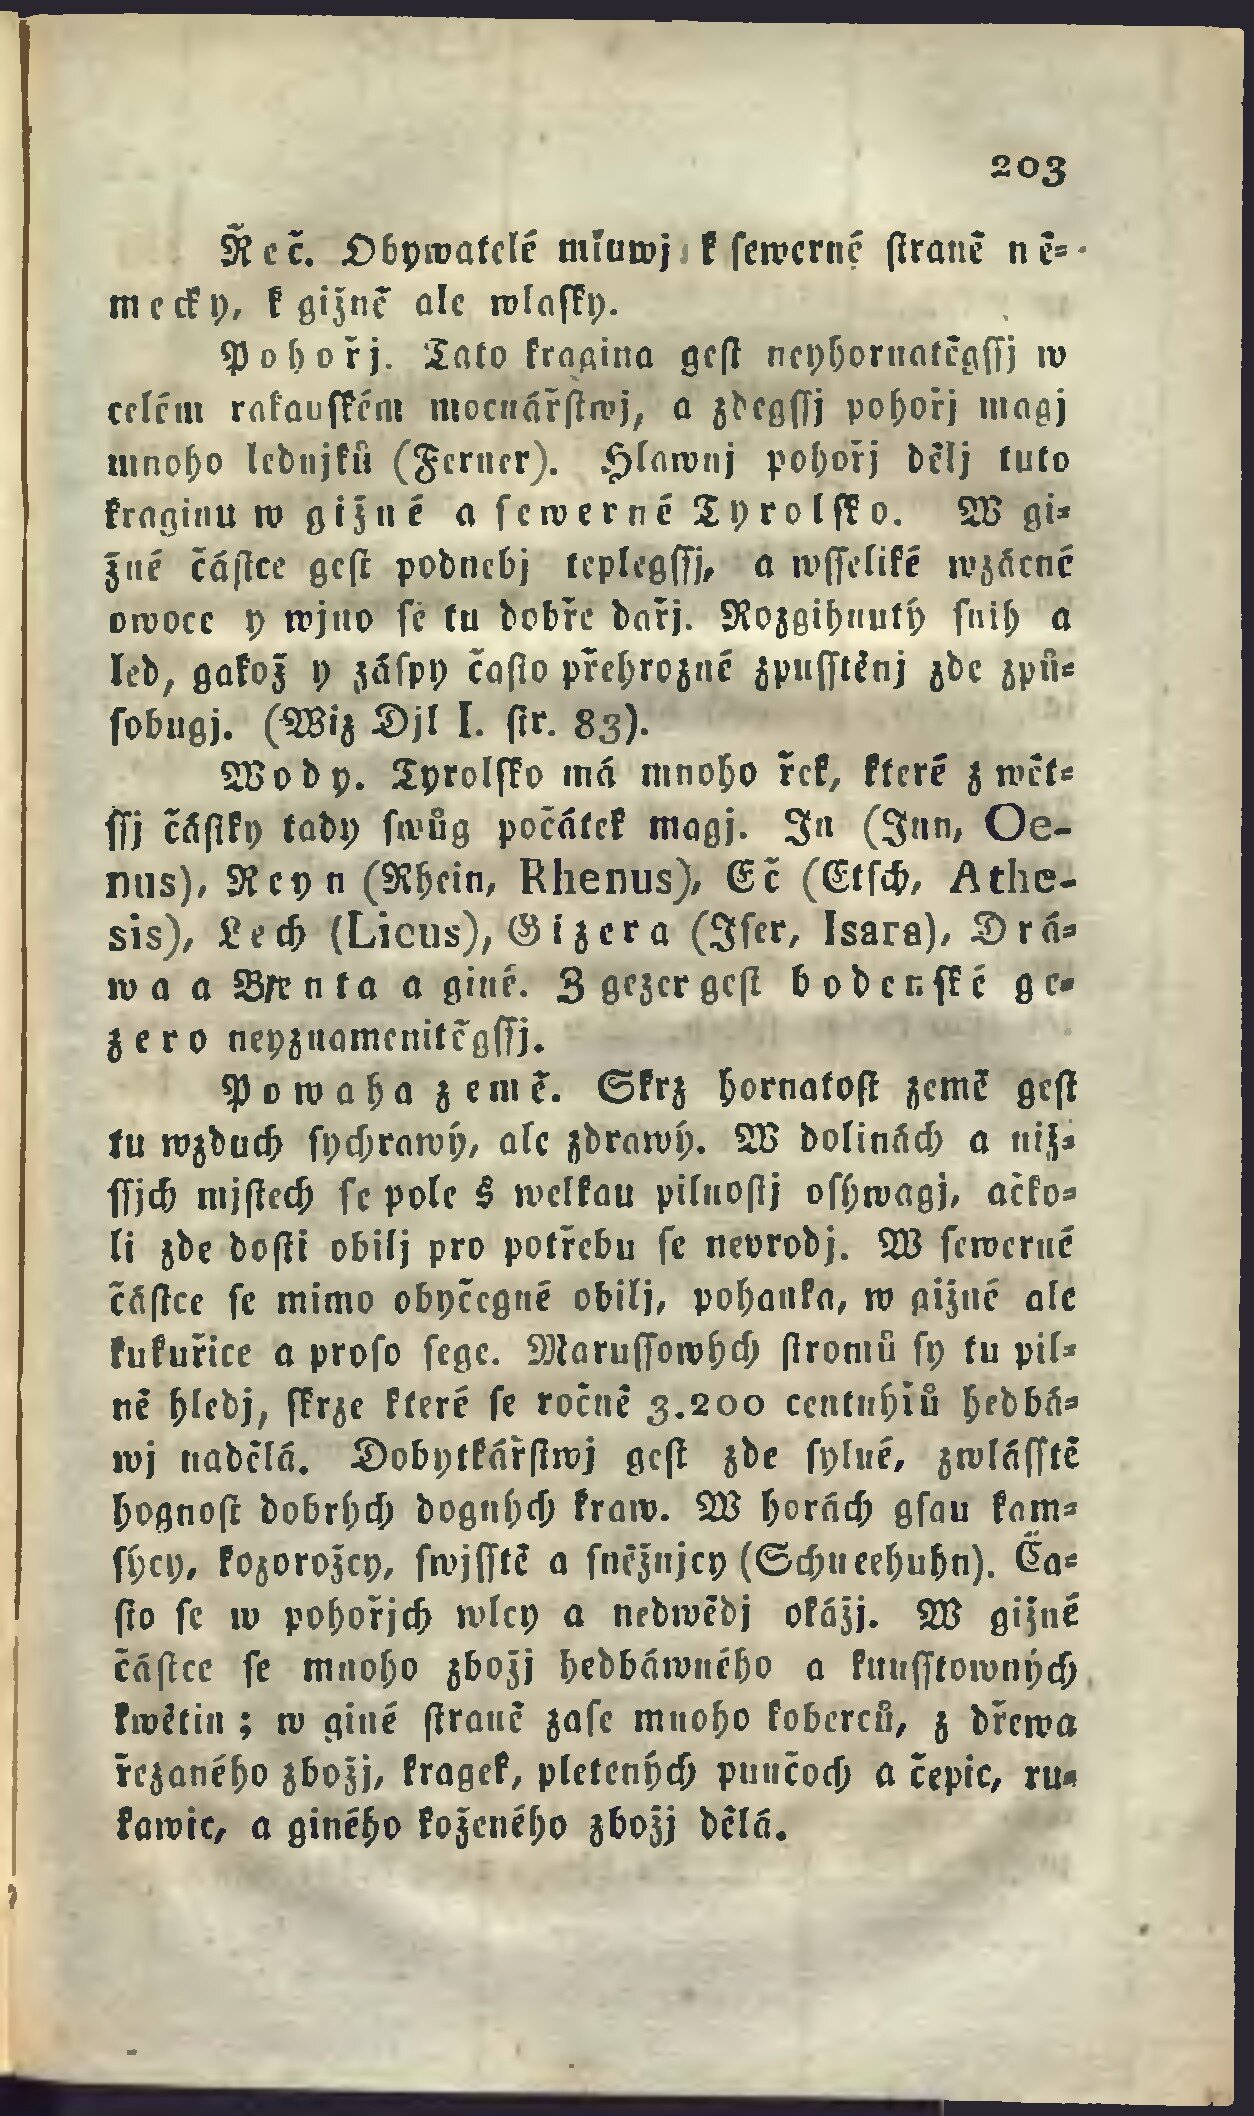 203
Řeč. Obywatelé mluwj k sewerné straně ně-
mecky, k gižně ale wlasky.
Pohořj. Tato kragina gest neyhornatěgssj w
celém rakauském mocnářstwj, a zdegssj pohořj magj
mnoho lednjků (Ferner). Hlawnj pohořj dělj tuto
kraginu w gižné a sewerné Tyrolsko. W gi-
žné částce gest podnebj teplegssj, a wsseliké wzácné
owoce y wjno se tu dobře dařj. Rozgihnutý snih a
led, gakož y záspy často přehrozné zpusstěnj zde způ-
sobugj. (Wiz Djl I. str. 83).
Wody. Tyrolsko má mnoho řek, které z wět-
ssj částky tady swůg počátek magj. In (Inn, Oe-
nus), Reyn (Rhein, Rhenus), Eč (Etsch, Athe-
sis), Lech (Licus), Gizera (Iser, Isara), Drá-
wa a Brenta a giné. Z gezer gest bodenské ge-
zero neyznamenitěgssj.
Powaha země. Skrz hornatost země gest
tu wzduch sychrawý, ale zdrawý. W dolinách a niž-
ssjch mjstech se pole s welkau pilnostj osýwagj, ačko-
li zde dosti obilj pro potřebu se nevrodj. W sewerné
částce se mimo obyčegné obilj, pohanka, w gižné ale
kukuřice a proso sege. Marussowých stromů sy tu pil-
ně hledj, skrze které se ročně 3.200 centnýřů hedbá-
wj nadělá. Dobytkářstwj gest zde sylné, zwlásstě
hognost dobrých dogných kraw. W horách gsau kam-
sýcy, kozorožcy, swjsstě a sněžnjcy (Schneehuhn). Ča-
sto se w pohořjch wlcy a nedwědj okážj. W gižné
částce se mnoho zbožj hedbáwného a kunsstowných
kwětin; w giné straně zase mnoho koberců, z dřewa
řezaného zbožj, kragek, pletených punčoch a čepic, ru-
kawic, a giného koženého zbožj dělá.